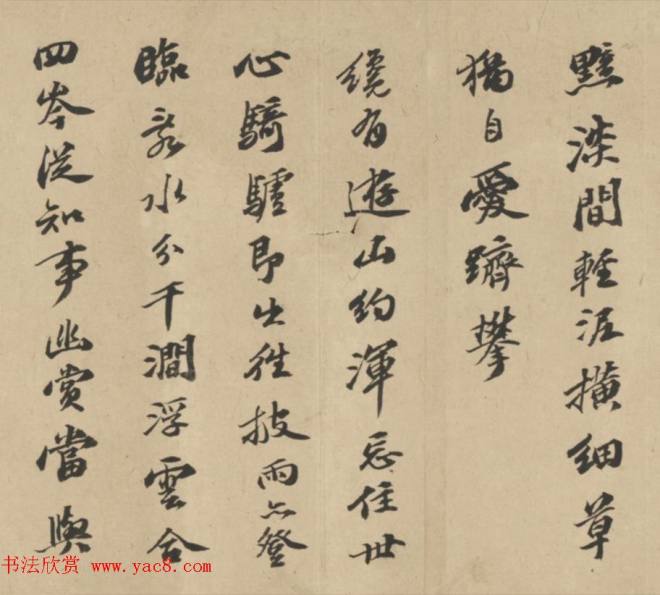 染間輕泥細草
猶自愛躋攀
纔有遊山約渾忘住世
心騎驢即出往披雨亦登
臨衆水分千澗浮雲合
四岑從知事幽賞當與
书法欣赏 www.yac8.com